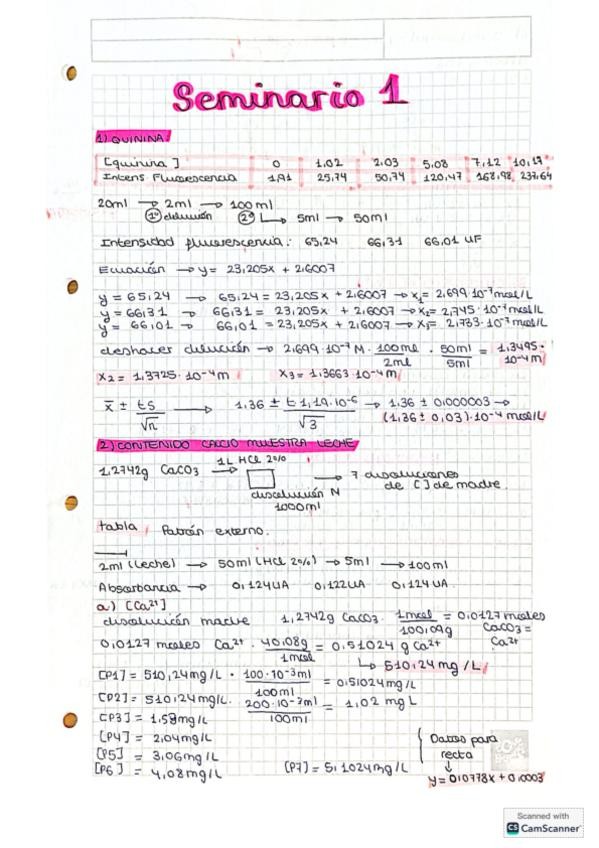 Seminario 1
1) QUININA
[quinina] 0 1,02 2,03 5,08 7,12 10,17
Intens Fluorescencia 1,91 25,74 50,74 120,47 168,98 237,64
20ml → 2ml → 100ml
1º dilución 2º ↳ 5ml → 50ml
Intensidad fluorescencia: 65,24 66,31 66,01 UF
Ecuación → y = 23,205x + 2,6007
y = 65,24 → 65,24 = 23,205x + 2,6007 → x₁ = 2,699·10⁻⁷ mol/L
y = 66,31 → 66,31 = 23,205x + 2,6007 → x₂ = 2,745·10⁻⁷ mol/L
y = 66,01 → 66,01 = 23,205x + 2,6007 → x₃ = 2,733·10⁻⁷ mol/L
deshacer dilución → 2,699·10⁻⁷ M · 100ml/2ml · 50ml/5ml = 1,3495·10⁻⁴ m
x₂ = 1,3725·10⁻⁴ m x₃ = 1,3663·10⁻⁴ m
x̄ ± ts/√n → 1,36 ± t 1,19·10⁻⁶/√3 → 1,36 ± 0,000003 → (1,36 ± 0,03)·10⁻⁴ mol/L
2) CONTENIDO CALCIO MUESTRA LECHE
1,2742g CaCO₃ 1L HCl 2% → 7 disoluciones de [ ] de madre.
disolución N
1000ml
tabla / Patrón externo.
2ml (leche) → 50ml (HCl 2%) → 5ml → 100ml
Absorbancia → 0,124UA 0,122UA 0,124UA
a) [Ca²⁺]
disolución madre 1,2742g CaCO₃ · 1mol/100,09g = 0,0127 moles CaCO₃ = Ca²⁺
0,0127 moles Ca²⁺ · 40,08g/1mol = 0,51024 g Ca²⁺
↳ 510,24 mg/L
[P1] = 510,24mg/L · 100·10⁻³ml/100ml = 0,51024mg/L
[P2] = 510,24mg/L · 200·10⁻³ml/100ml = 1,02 mg L
[P3] = 1,59mg/L
[P4] = 2,04mg/L
[P5] = 3,06mg/L
[P6] = 4,08mg/L [P7] = 5,1024mg/L
Datos para recta
↓
y = 0,0778x + 0,0003
Scanned with
CS CamScanner